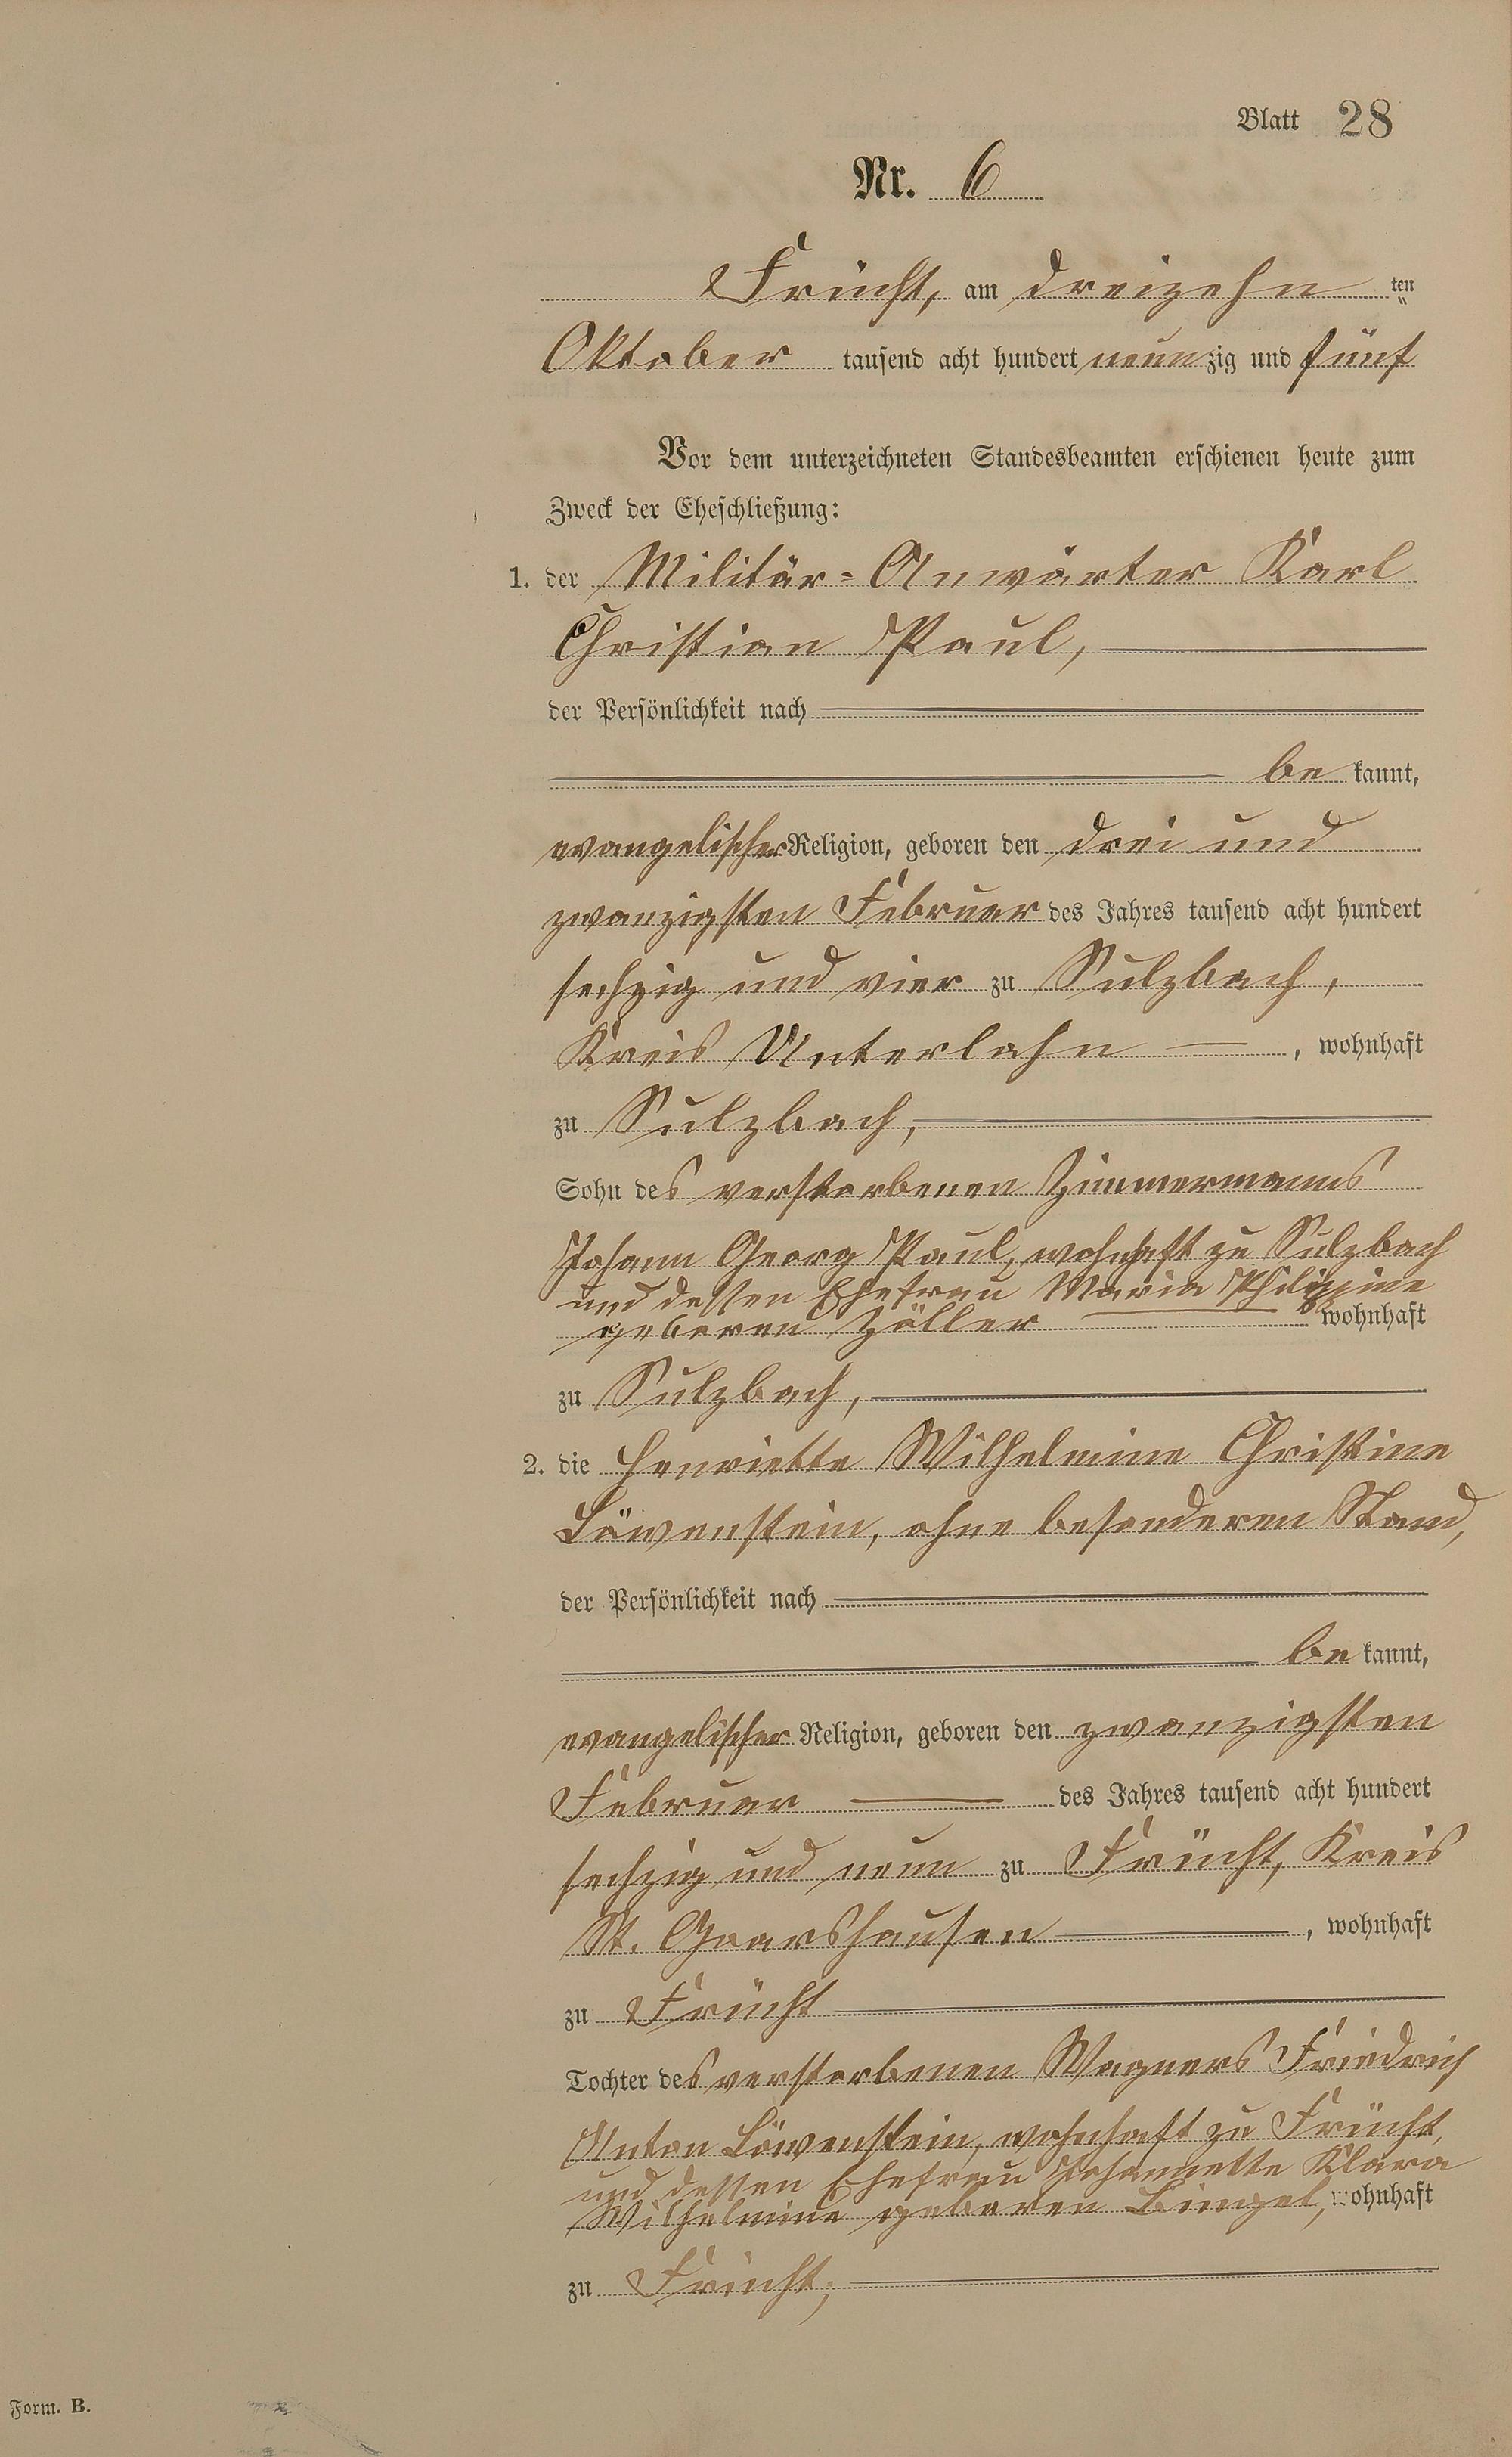 Blatt 28
Nr. 6
Frücht, am dreizehn ten
Oktober tausend acht hundert neunzig und fünf
Vor dem unterzeichneten Standesbeamten erschienen heute zum
Zweck der Eheschließung:
1. der Militär-Anwärter Karl
Christian Paul,
der Persönlichkeit nach
be kannt,
evangelischer Religion, geboren den drei und
zwanzigsten Februar des Jahres tausend acht hundert
sechzig und vier zu Sulzbach,
Kreis Unterlahn, wohnhaft
zu Sulzbach,
Sohn des verstorbenen Zimmermanns
Johann Georg Paul, wohnhaft zu Sulzbach
und dessen Ehefrau Maria Philippine
geboren Zöller wohnhaft
zu Sulzbach,
2. die Henriette Wilhelmine Christine
Löwenstein, ohne besonderen Stand,
der Persönlichkeit nach
be kannt,
evangelischer Religion, geboren den zwanzigsten
Februar des Jahres tausend acht hundert
sechzig und neun zu Frücht, Kreis
St. Goarshausen, wohnhaft
zu Frücht
Tochter des verstorbenen Wagners Friedrich
Anton Löwenstein, wohnhaft zu Frücht,
und dessen Ehefrau Johannette Klara
Wilhelmine geboren Bingel, wohnhaft
zu Frücht;
Form. B.